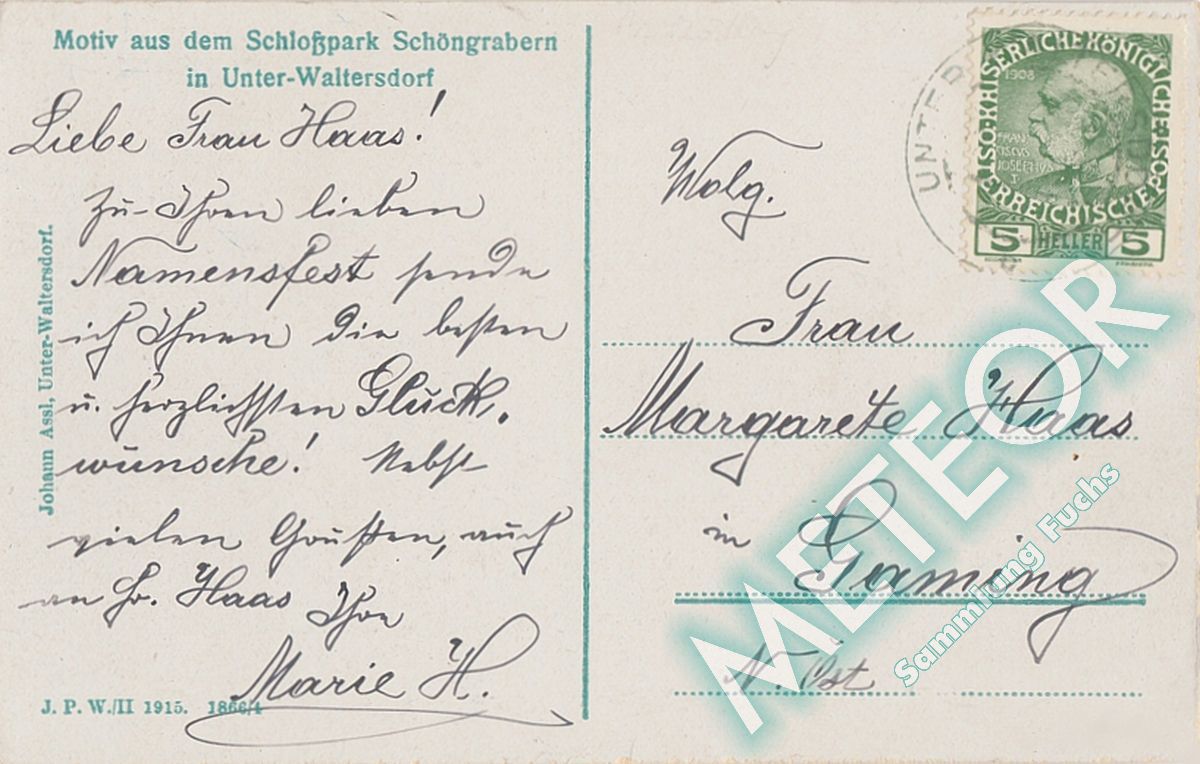 Motiv aus dem Schloßpark Schöngrabern
in Unter-Waltersdorf
Liebe Frau Haas!
Zu Ihren lieben
Namensfest sende
ich Ihnen die besten
u. herzlichsten Glück-
wünsche! Nebst
vielen Grüßen, auch
an Hr. Haas Ihre
Marie H.
J. P. W./II 1915. 1866/4
Johann Assl, Unter-Waltersdorf.
UNTER
K. K. ÖSTERREICHISCHE POST
KAISERLICHE KÖNIGLICHE
1908
5 HELLER 5
Wolg.
Frau
Margarete Haas
in Gaming
N. Öst
METEOR
Sammlung Fuchs